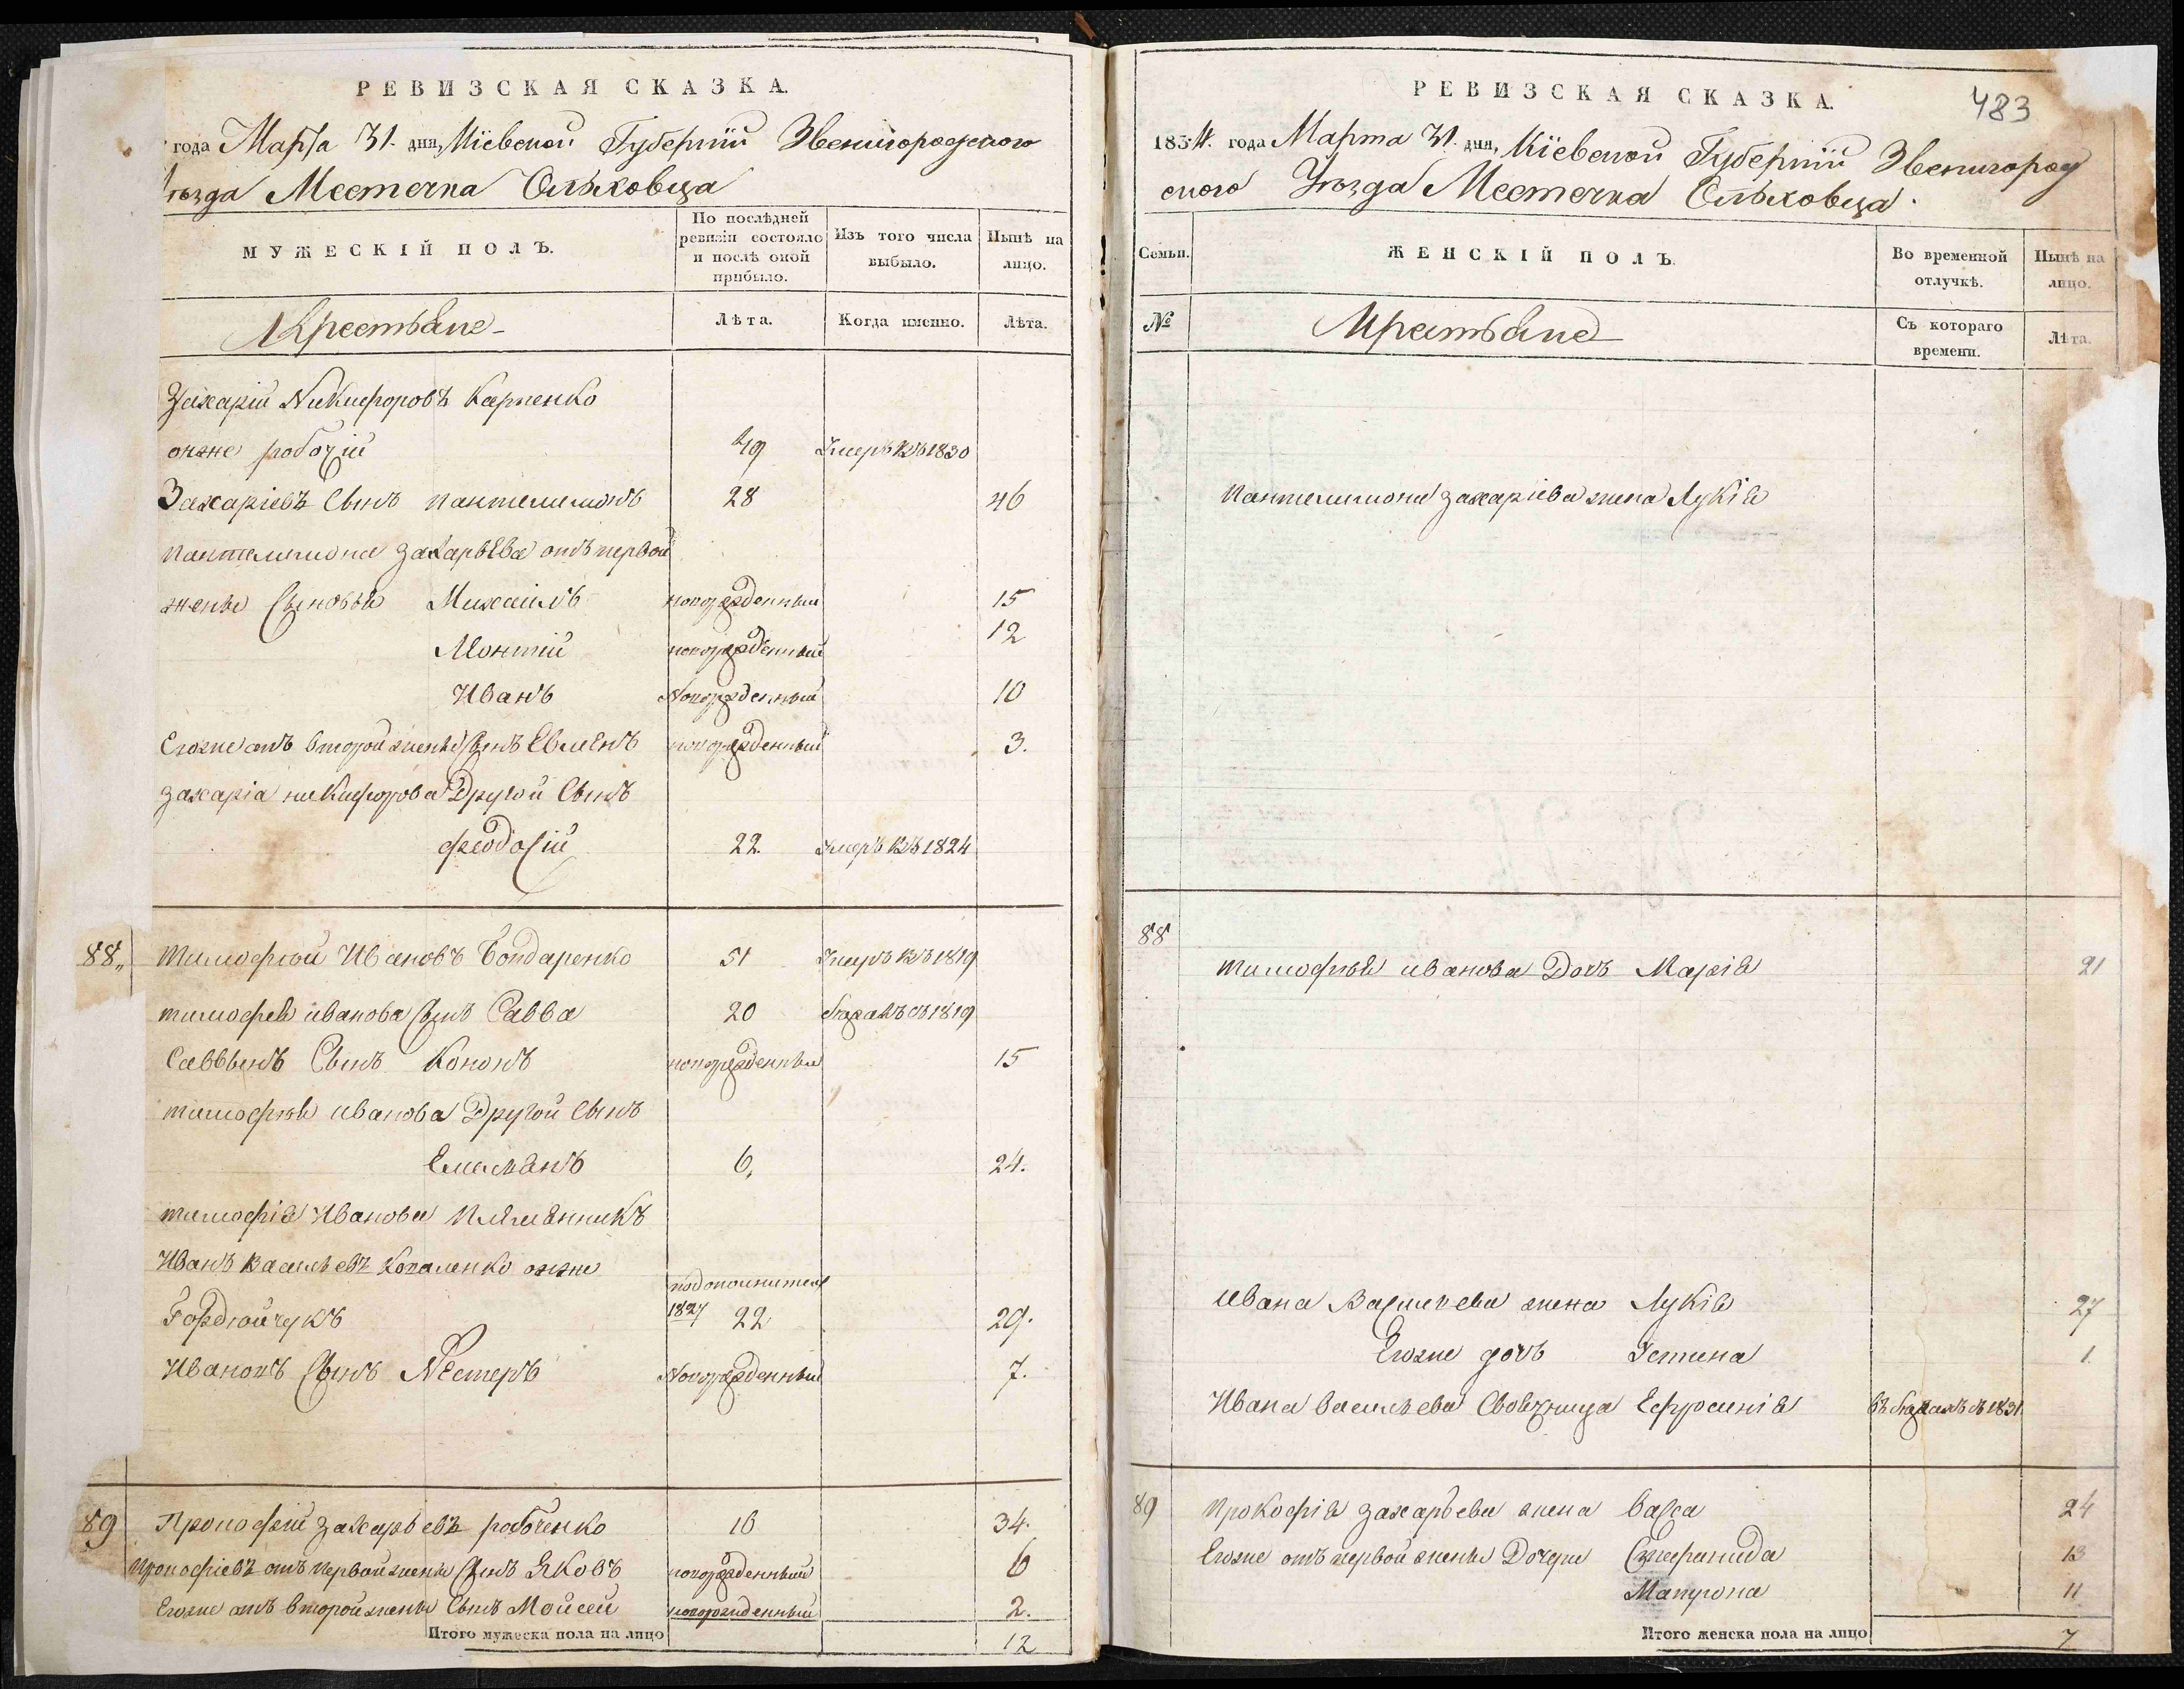 РЕВИЗСКАЯ СКАЗКА.
года Марта 31. дня, Кіевской Губерніи Звенигородского
уезда Местечка Ольховца
МУЖЕСКІЙ ПОЛЪ.
По послѣдней ревизіи состояло и послѣ оной прибыло.
Изъ того числа выбыло.
Нынѣ на лицо.
Крестьяне
Лѣта.
Когда именно.
Лѣта.
Захарій Никифоровъ Карпенко
онже робочій 49 Умеръ въ 1830
Захаріевъ Сынъ Пантелимонъ 28 46
Пантелимона Захарьева отъ первой
жены Сыновья Михаилъ новорожденный 15
Монтій новорожденный 12
Иванъ Новорожденный 10
Егоже отъ второй жены Сынъ Евменъ новорожденный 3.
Захаріа никифорова Другой Сынъ
Феодосій 22. Умеръ въ 1824
88 Тимофей Ивановъ Бондаренко 51 Умеръ въ 1819
тимофея иванова Сынъ Савва 20 въ 1819
Саввынъ Сынъ Кононъ новорожденный 15
тимофея иванова Другой Сынъ
Емельянъ 6. 24.
тимофія Иванова Племянникъ
Иванъ Васильевъ Коваленко онже
Гордюйчукъ 1827 22 29.
Ивановъ Сынъ Нестеръ Новорожденный 7.
89 Прокофій Захарьевъ робоченко 16 34.
Прокофіевъ отъ первой жены Сынъ Яковъ новорожденный 6
Егоже отъ второй жены Сынъ Мойсей новорожденный 2.
Итого мужеска пола на лицо 12
РЕВИЗСКАЯ СКАЗКА.
483
1834. года Марта 31. дня, Кіевской Губерніи Звенигород
ского Уезда Местечка Ольховца.
Семьи.
ЖЕНСКІЙ ПОЛЪ.
Во временной отлучкѣ.
Нынѣ на лицо.
№
Крестьяне
Съ котораго времени.
Лѣта.
Пантелимона Захаріева жена Лукія
88
тимофея иванова Дочь Марія 21
Ивана Васильева жена Лукія 27
Егоже дочь Устина 1.
Ивана Васильева Ефросинія 1831
89 Прокофія Захарьева жена Васса 24
Егоже отъ первой жены Дочери 13
Матрона 11
Итого женска пола на лицо 7